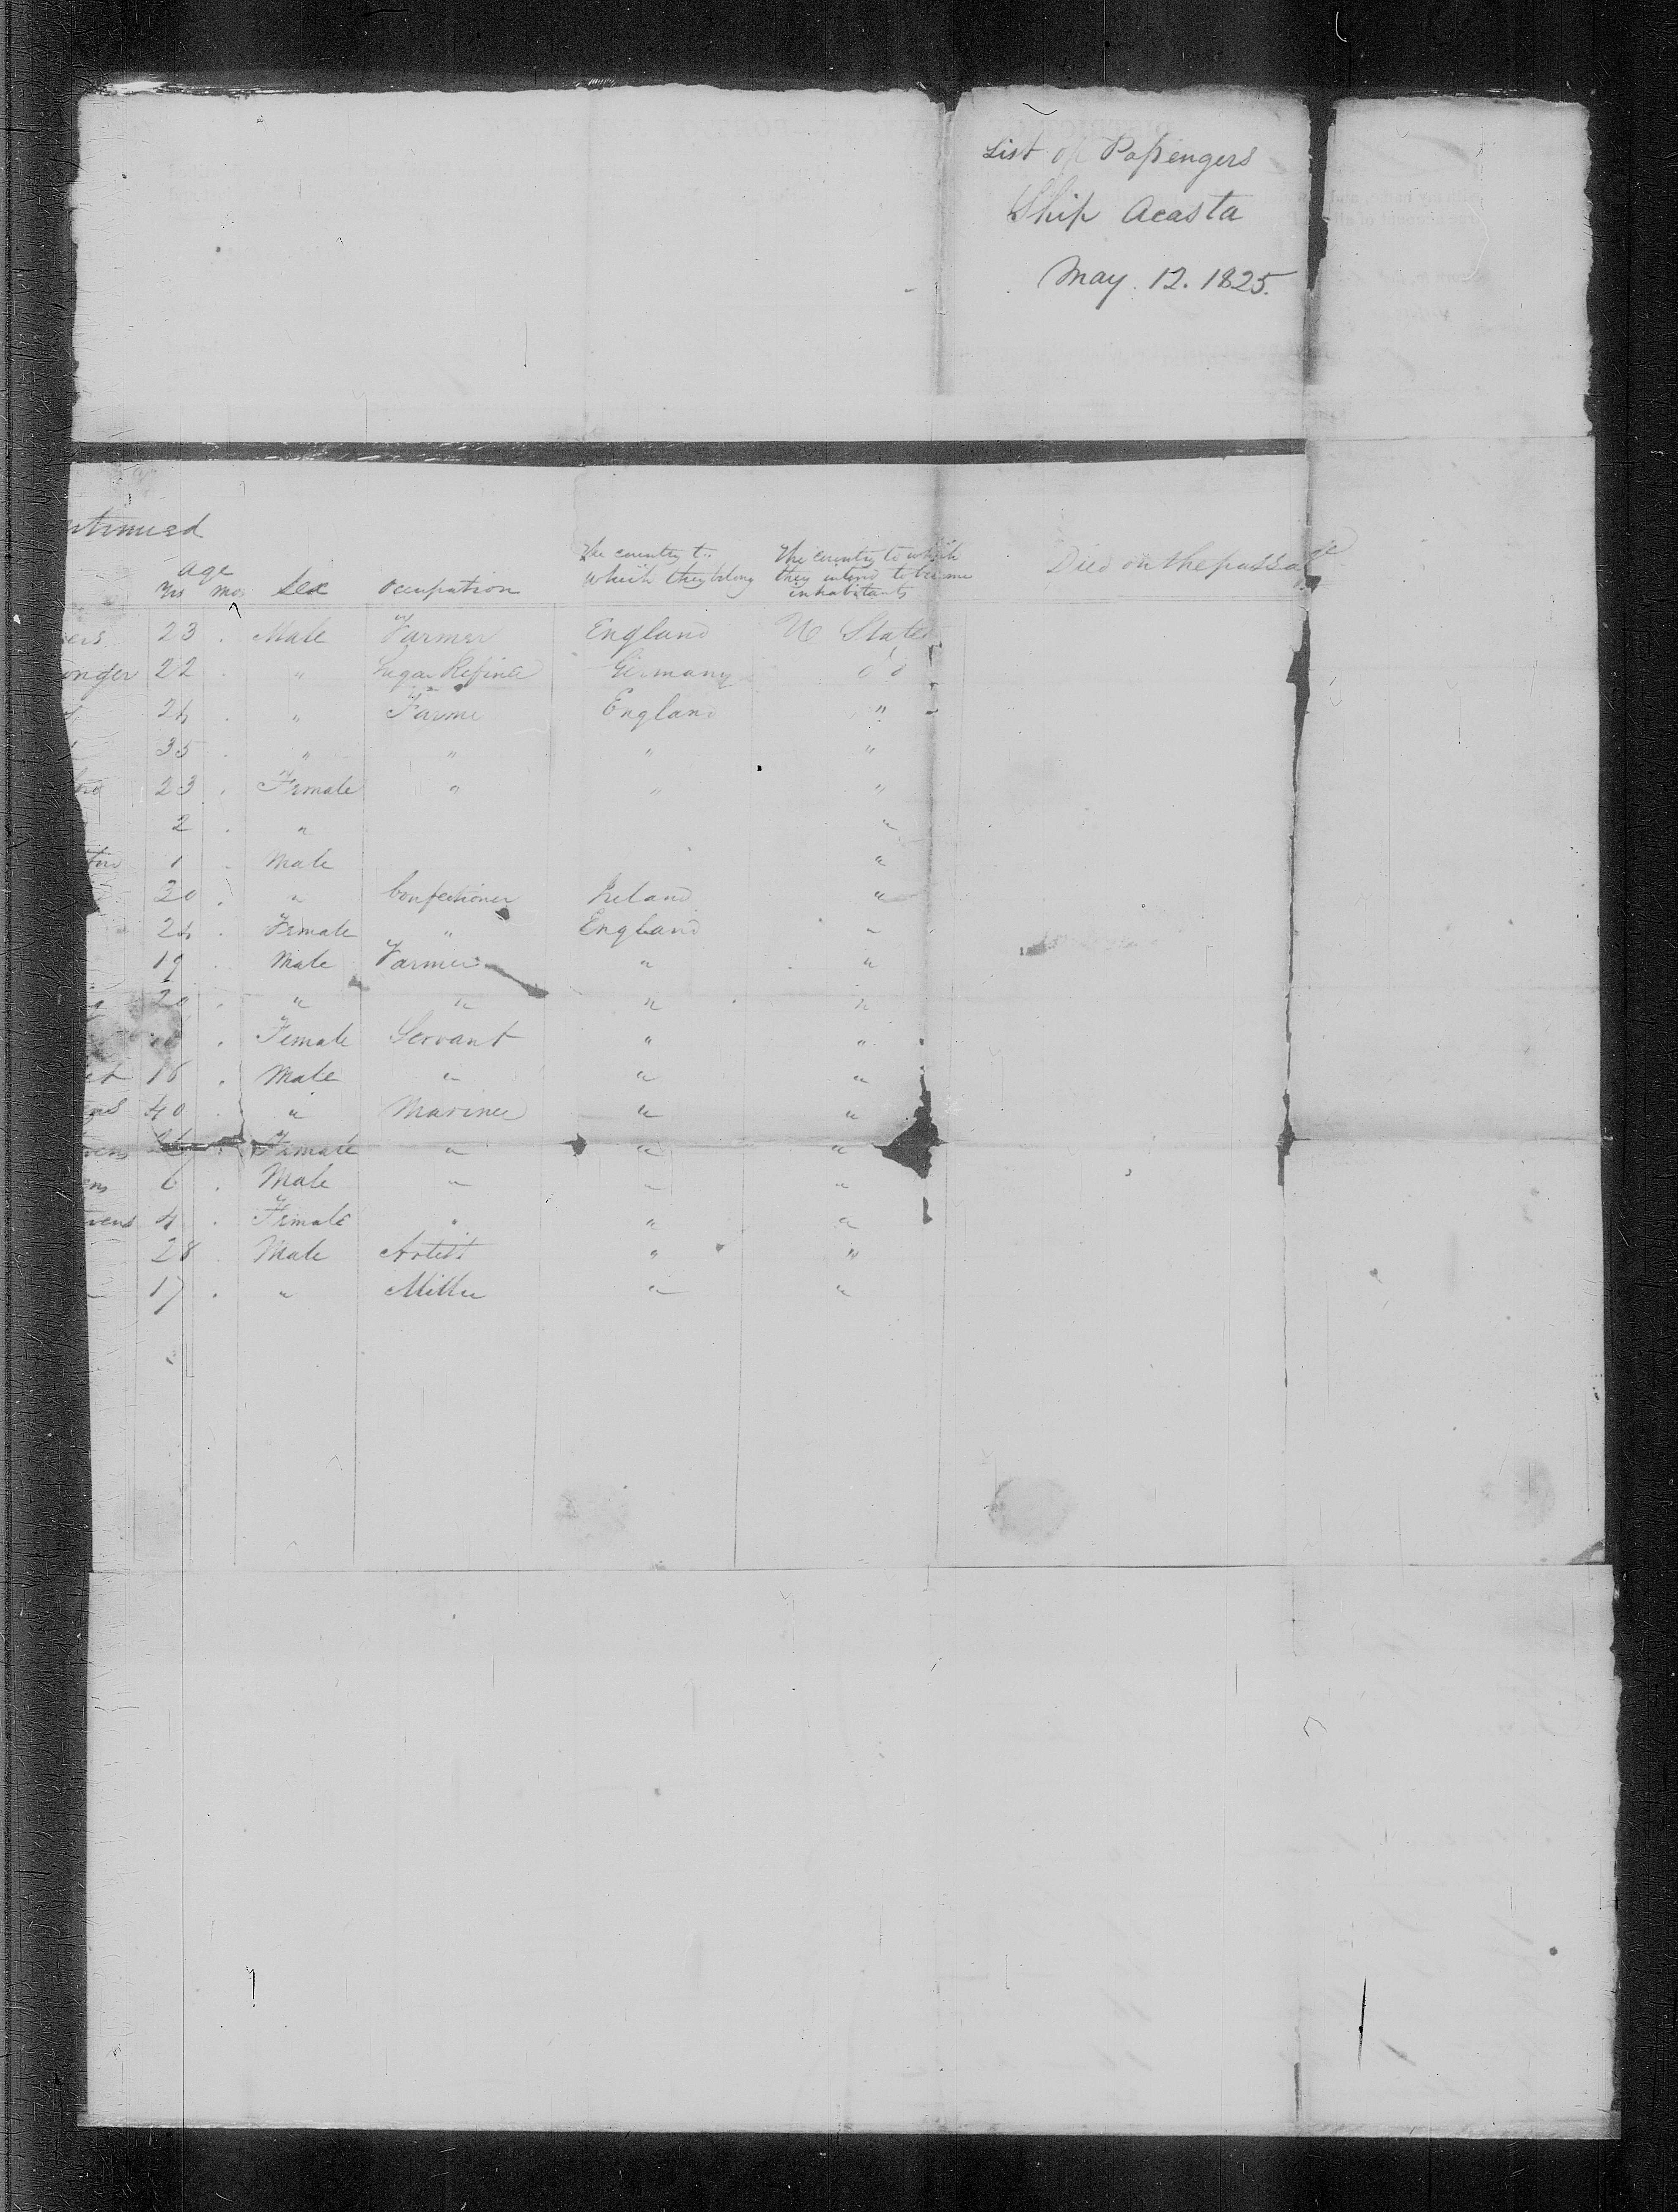 List of Passengers
Ship Acasta
May. 12. 1825.
ntinued
age
Yrs Mos Sex Occupation The country to which they belong The country to which they intend to become inhabitants Died on the passage
ers 23 . Male Farmer England U States
onger 22 . " Sugar Refiner Germany do
24 . " Farmer England "
35 . " " " "
23 . Female " " "
2 . " "
1 . Male "
20 . " Confectioner Ireland "
24 . Female " England "
19 . Male Farmer " "
20 . " " " "
. Female Servant " "
et 16 . Male " " "
ens 40 . " Mariner " "
vens . Female " " "
ens 6 . Male " " "
evens 4 . Female " " "
28 Male Artist " "
17 . " Miller " "